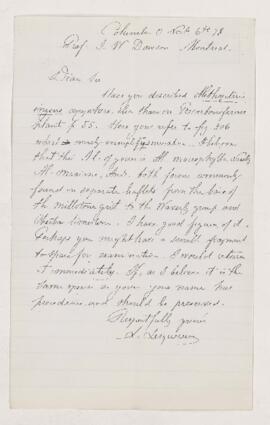 Columbus O Feb 6th 78
Prof. J. W. Dawson Montreal
Dear Sir
Have you described Alethopteris
anywhere, else than on Precarboniferous
plants p 55. Here you refer to fig 206
which is merely
that this of yours is Al. macrophylla Newby
Al. And both forms commonly
found in separate leaflets from the base of
the millstone grit to the Waverly group and
Chester limestone. I have good figures of it.
Perhaps you might have a small fragment
to spare for examination. I would return
it immediately. If, as I believe it is the
same species as yours your name has
precedence and should be preserved.
Respectfully yours
L. Lesquereux